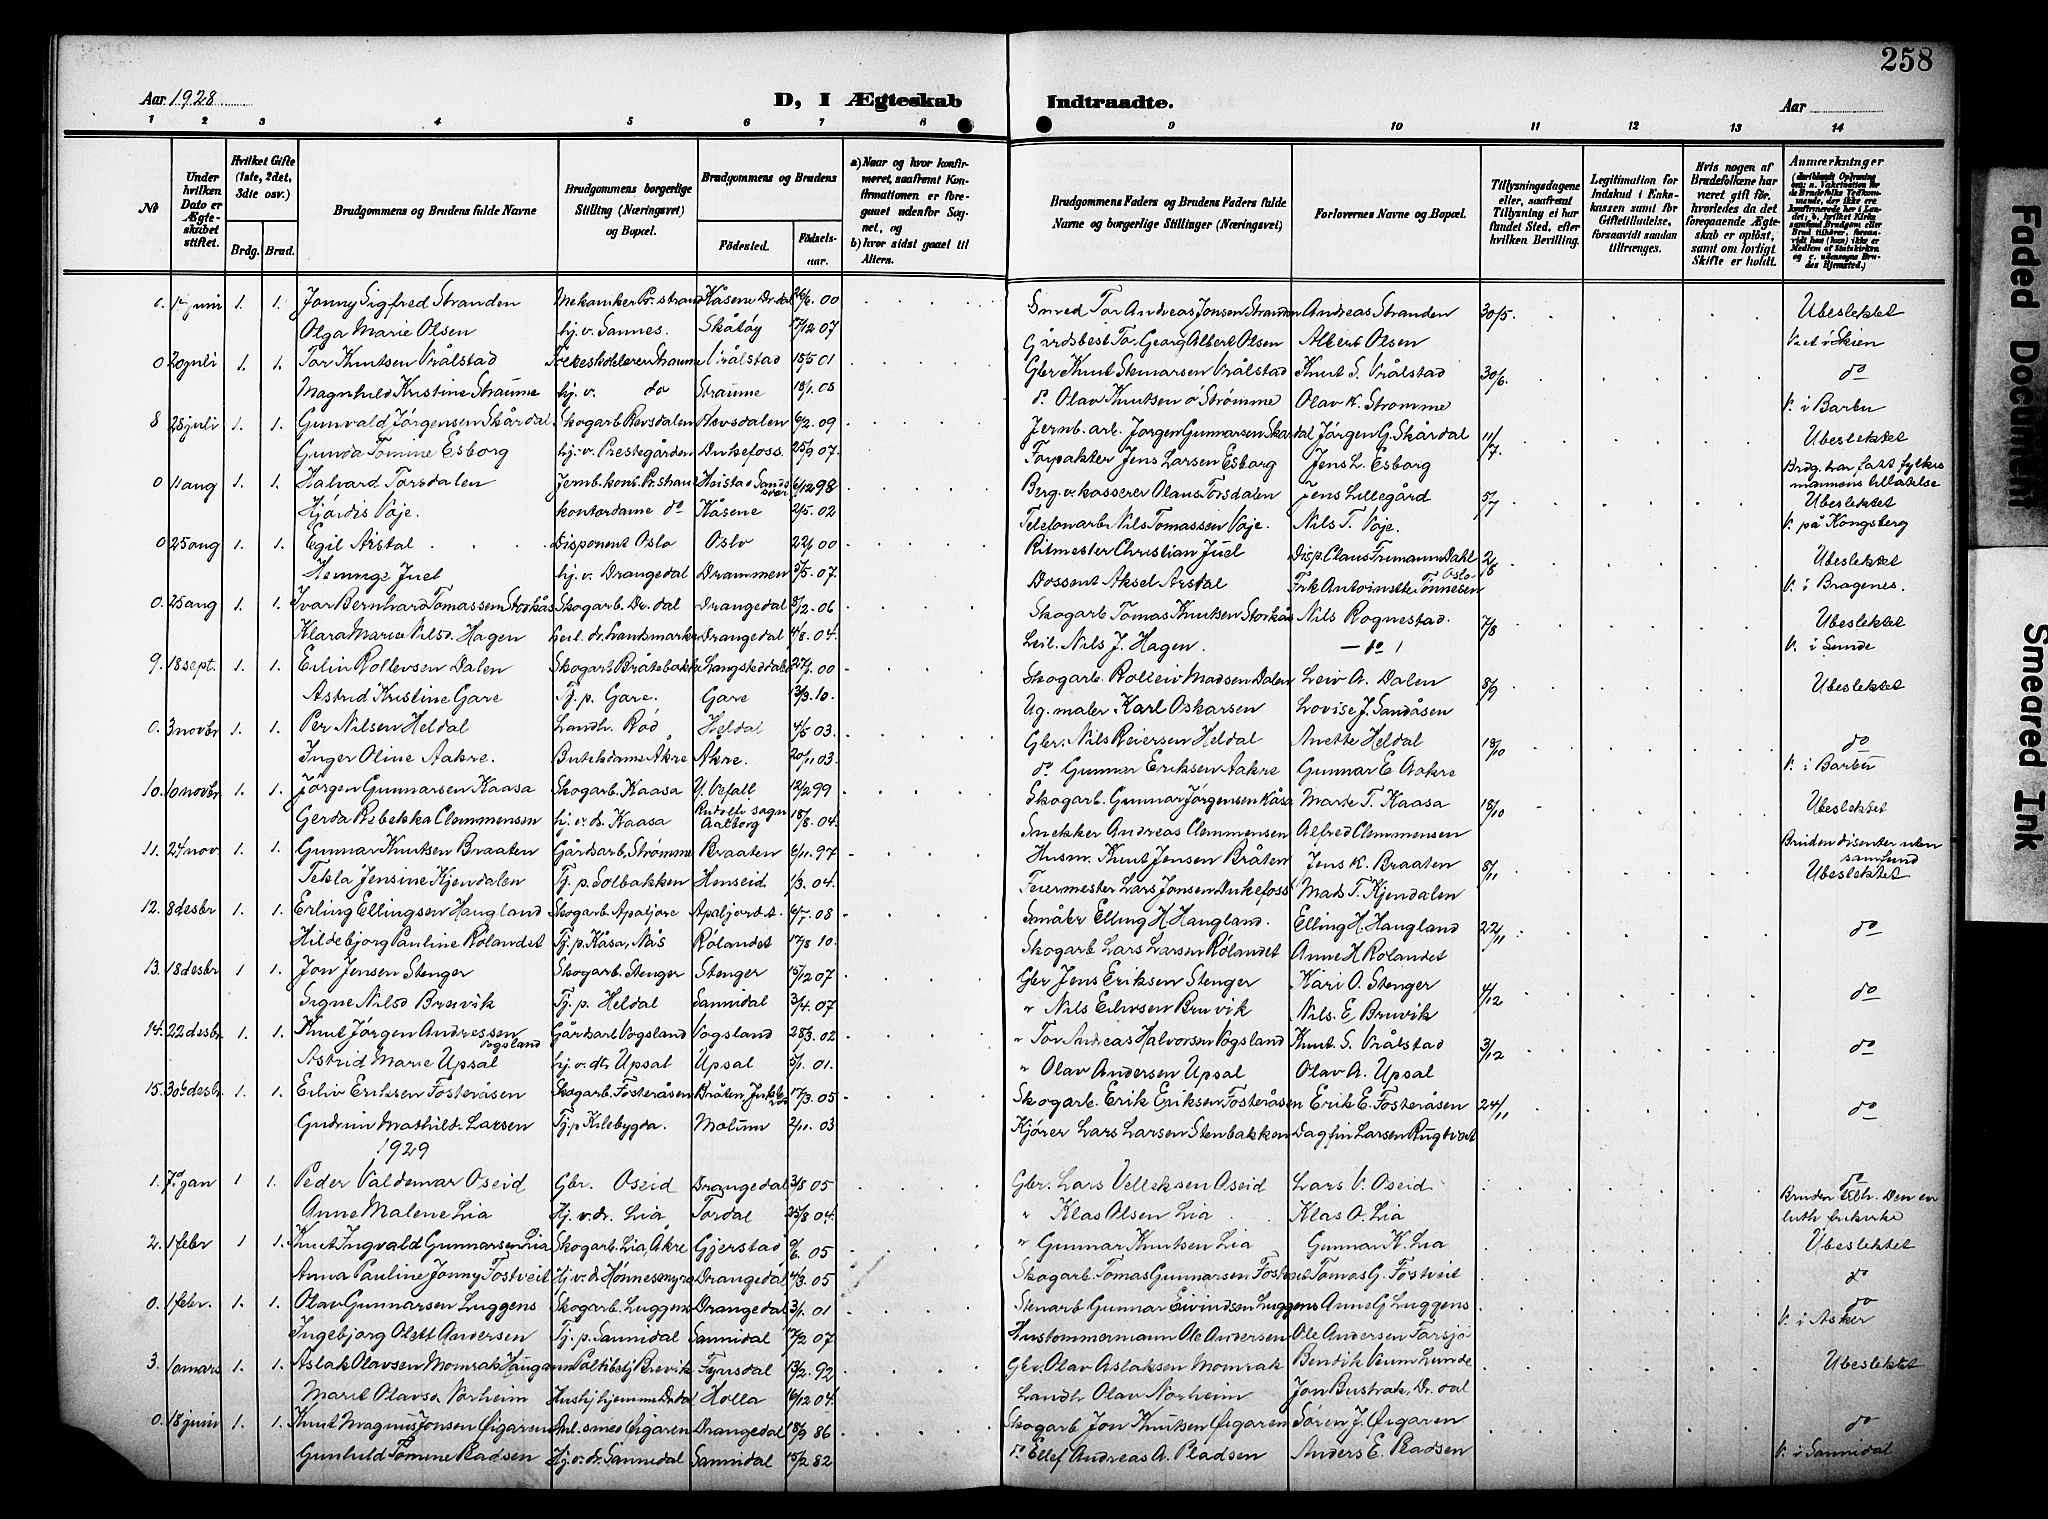 258
Aar 1928
D, I Ægteskab Indtraadte.
Aar
1 2 3 4 5 6 7 8 9 10 11 12 13 14
№
Under hvilken Dato er Ægteskabet stiftet.
Hvilket Gifte (1ste, 2det, 3die osv.)
Brdg. Brud.
Brudgommens og Brudens fulde Navne
Brudgommens borgerlige Stilling (Næringsvei) og Bopæl.
Brudgommens og Brudens
Fødested. Fødselsaar.
a) Naar og hvor konfirmeret, saafremt Konfirmationen er foregaaet udenfor Sognet, og
b) hvor sidst gaaet til Alters.
Brudgommens Faders og Brudens Faders fulde Navne og borgerlige Stillinger (Næringsvei)
Forlovernes Navne og Bopæl.
Tillysningsdagene eller, saafremt Tillysning ei har fundet Sted, efter hvilken Bevilling.
Legitimation for Indskud i Enkekassen samt for Giftetilladelse, forsaavidt saadan tiltrænges.
Hvis nogen af Brudefolkene har været gift før, hvorledes da det foregaaende Ægteskab er opløst, samt om lovligt Skifte er holdt.
Anmærkninger
0. 1 juni 1. 1. Jonny Sigfred Stranden Mekaniker Pr.strand Kåsene Dr.dal 26/6.00 Smed Tor Andreas Jonsen Stranden Andreas Stranden 30/5. Ubeslektet
Olga Marie Olsen hj.v. Sannes. Skåtøy 17/12 07 Gårdsbest. Tor Georg Albert Olsen Albert Olsen V. i Skien
0 20 juli 1. 1. Tor Knutsen Vrålstad Vrålstad 15/5 01 Gbr Knut Vrålstad Knut S. Vrålstad 30/6. do
Magnhild Kristine Straume hj. v. do Straume 18/1.08 do. Olav Knutsen Strømme Olav K. Strømme V. i Barbu
8 28 juli 1. 1. Gunvald Jørgensen Skårdal Skogarb. 6/2.09 Jernb.arb. Jørgen Gunnarsen Skårdal Jørgen G. Skårdal 11/7 Ubeslektet
Gunda Tomine Esborg hj.v. Prestegården Dukefoss. 25/9 07. Forpakter Jens Larsen Esborg Jens L. Esborg Brdg. har fått fylkesmannens tillatelse
0 11 aug 1. 1. Halvard Torsdalen Jernb.kont. Pr.strand 6/12 98 Berg.v. kasserer Olaus Torsdalen Jens Lillegård 5/7 Ubeslektet
Hjørdis Voje. kontordame do Kåsene 2/5.02 Telefonarb Nils Tomassen Voje. Nils T. Voje. V. på Kongsberg
0 25 aug 1. 1. Egil Arstal Disponent Oslo Oslo 22/1 00 Ritmester Christian Juel Disp. Claus Frimann Dahl Oslo 2/8 Ubeslektet
Henninge Juel hj.v. Drangedal Drammen 5/5.07. Dossent Aksel Arstal Frk Antoinette Tønnesen V. i Bragenes.
0. 25 aug 1. 1. Ivar Bernhard Tomassen Storkås Skogarb. Dr.dal Drangedal 8/2.06 Skogarb Tomas Knutsen Storkås Nils Rognestad. 7/8 Ubeslektet
Klara Marie Nilsd. Hagen Drangedal 4/8.04. Leil. Nils J. Hagen. — do V. i Sunde
9. 18 sept. 1. 1. Eiliv Rollevsen Dalen Skogarb Bråtebakke 27/1.00 Skogarb. Rolleiv Madsen Dalen Leiv A. Dalen 8/9 Ubeslektet
Astrid Kristine Gare Tj. p. Gare. Gare 13/3.10. Ug. maler Karl Oskarsen Lovise J. Sandåsen
0. 3 novbr 1. 1. Per Nilsen Heldal Landh. Rød Heldal 4/5 03. Gbr. Nils Reiersen Heldal Anette Heldal 18/10 do
Inger Oline Aakre. Butikdame Åkre Åkre. 20/11 03. do Gunnar Eriksen Aakre Gunnar E Aakre V. i Barbu
10. 10 novbr 1. 1. Jørgen Gunnarsen Kaasa Skogarb. Kaasa Vefall 12/2 99 Skogarb. Gunnar Jørgensen Kåsa Marte T. Kaasa 18/10 Ubeslektet
Gerda Rebekka Clemmensen hj.v.ds. Kaasa Rudolfi sogn Aalborg 18/8.04. Snekker Andreas Clemmensen Alfred Clemmensen Bruden disenter uten samfund
11. 24 nov 1. 1. Gunnar Knutsen Braaten Gårdsarb. Strømme Braaten 6/11.97 Husm. Knut Jensen Bråten Jens K. Braaten 8/11 Ubeslektet
Tekla Jensine Kjendalen Tj. p. Solbakken Henseid 1/3.04. Feiermester Lars Jonsen Dukefoss Mads T. Kjendalen
12. 8 desbr 1. 1. Erling Ellingsen Haugland Skogarb. Apaljore Apaljord 6/7.08 Småbr Elling H. Haugland. Elling H. Haugland 22/11 do
Hildebjorg Pauline Rølandet Tj. p. Kåsa, Nås Rølandet 17/8 10. Skogarb Lars Larsen Rølandet Anne H Rølandet
13. 18 desbr 1 1. Jon Jensen Stenger Skogarb. Stenger Stenger 15/12 07 Gbr Jens Eriksen Stenger Kari O. Stenger 4/12 do
Signe Nilsd Bruvik Tj. p. Heldal Sannidal 3/4.07 " Nils Eilivsen Bruvik Nils. E, Bruvik
14. 22 desbr 1. 1. Knut Jørgen Andressen Vogsland Gårdsarb Vogsland Vogsland 28/3.02 " Tor Andreas Halvorsen Vogsland Knut. S. Vrålstad 3/12 do
Astrid Marie Upsal hj.v.dr. Upsal Upsal 5/1.01. " Olav Andersen Upsal Olav A. Upsal
15. 30 desbr. 1. 1. Eiliv Eriksen Fosteråsen Skogarb. Fosteråsen Bråten, 17/3.05 Skogarb. Erik Eriksen Fosteråsen Erik E. Fosteråsen 24/11 do
Gudrun Mathild. Larsen Tj. p Kilebygda. Solum 2/11.03 Kjører Lars Larsen Stenbakken Dagfin Larsen Rugtveit
1929
1. 7. jan 1 1. Peder Valdemar Oseid Gbr. Oseid Drangedal 3/8 05 Gbr. Lars Velleksen Oseid Lars V. Oseid do
Anne Malene Lia Hj.v.dr. Lia Tørdal 25/8 04. " Klas Olsen Lia Klas O. Lia Bruden tilh. Den ev luth frikirke
2. 1 febr 1 1. Knut Ingvald Gunnarsen Lia Skogarb. Lia, Åkre Gjerstad 9/6.05 " Gunnar Knutsen Lia Gunnar K. Lia Ubeslektet
Anna Pauline Jonny Fostveit Hj.v.dr. Hønnesmyra Drangedal 4/3.05 Skogarb. Tomas Gunnarsen Fostveit Tomas G. Fostveit do
0. 1 febr. 1. 1. Olav Gunnarsen Luggens Skogarb. Luggens Drangedal 3/1.01 Stenarb Gunnar Eivindsen Luggens Anne G Luggens do
Ingebjorg Olett Andersen Tj. p. Sannidal Sannidal 17/2 07 Hustømmermann Ole Andersen Ole Andersen Farsjø V. i Asker
3. 10 mars 1. 1. Aslak Olavsen Momrak Haugann Politibetj. Brevik Fyrisdal 13/2.92 Gbr. Olav Aslaksen Momrak Bendik Veum Lunde Ubeslektet
Marit Olavsd. Norheim Hushj hjemme Dr.dal Holla 16/12 04. Landh Olav Norheim Jon Bustrak, Dr.dal
0. 18 juni 1. 1. Knut Magnus Jonsen Øigaren Anl.smed Øigaren Drangedal 18/9 86 Skogarb Jon Knutsen Øigaren Søren J. Øigaren do
Gunhild Tomine Pladsen Hj.v.dr. Sannidal Sannidal 15/2 82 do. Ellef Andreas A. Pladsen Anders E. Pladsen V. i Sannidal
Faded Document
Smeared Ink